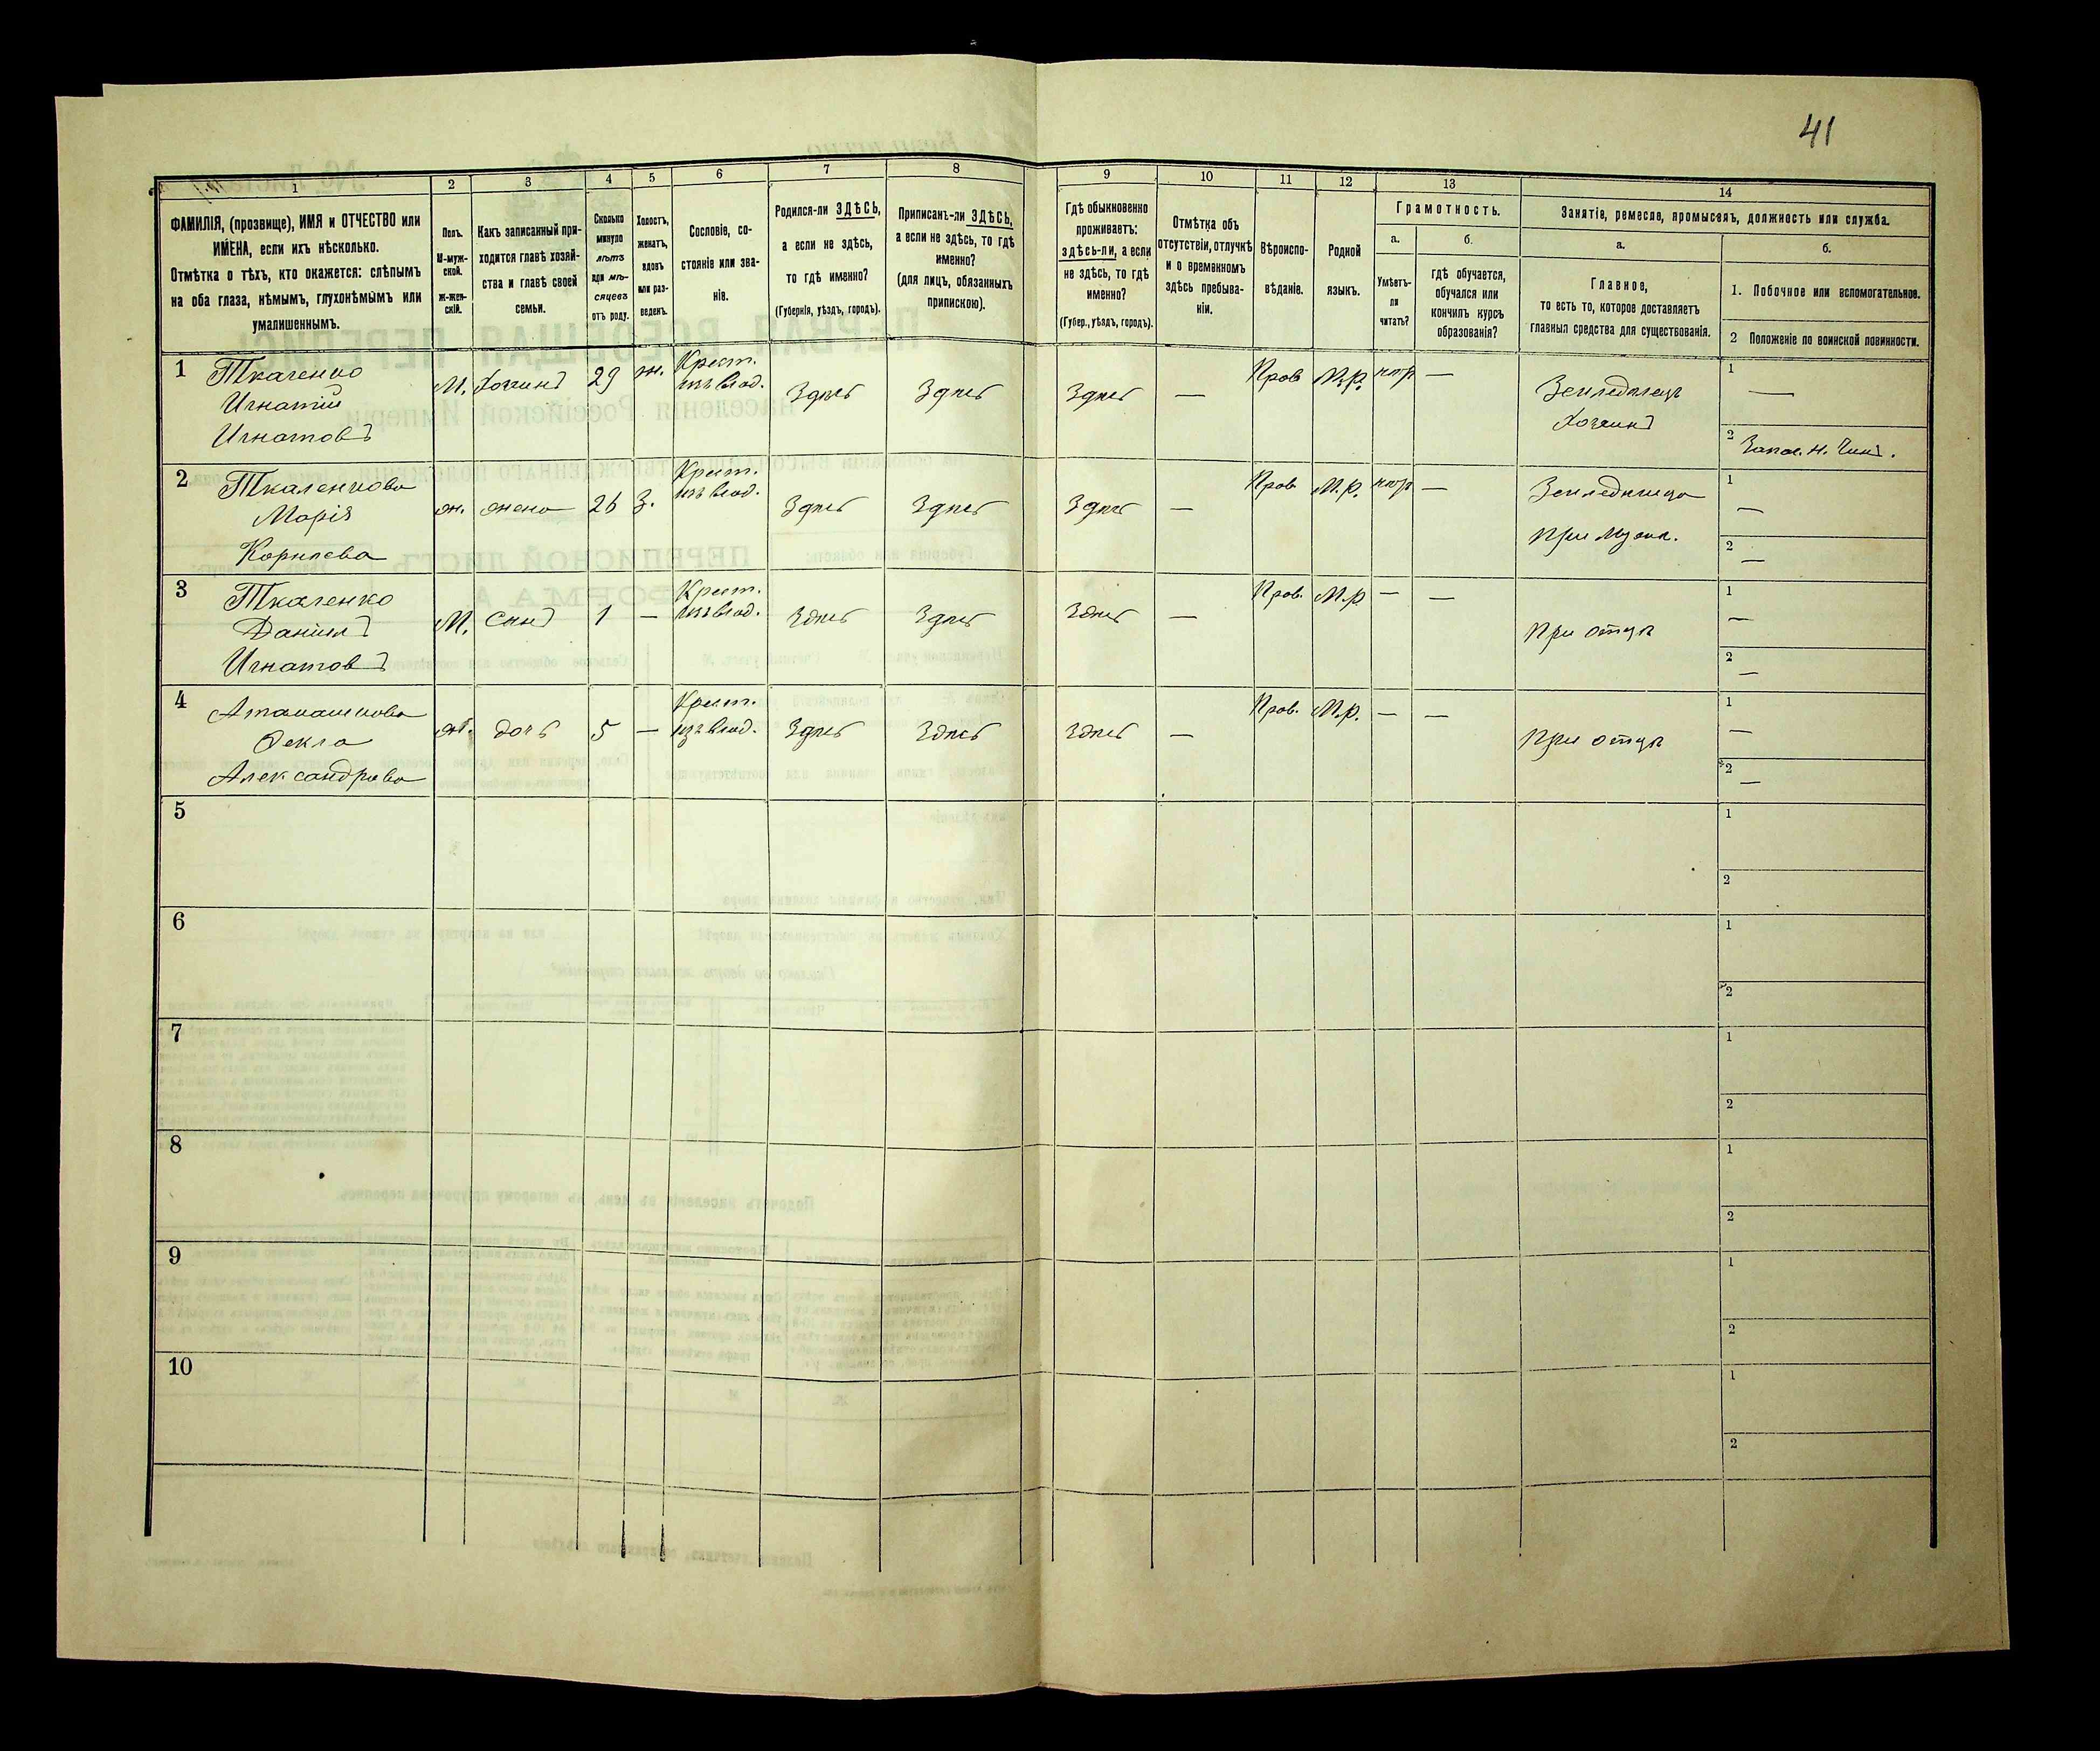 41
1
2
3
4
5
6
7
8
9
10
11
12
13
14
ФАМИЛІЯ, (прозвище), ИМЯ и ОТЧЕСТВО или
ИМЕНА, если ихъ нѣсколько.
Отмѣтка о тѣхъ, кто окажется: слѣпымъ
на оба глаза, нѣмымъ, глухонѣмымъ или
умалишеннымъ.
Полъ.
М-муж-
ской.
Ж-жен-
скій.
Какъ записанный при-
ходится главѣ хозяй-
ства и главѣ своей
семьи.
Сколько
минуло
лѣтъ
или мѣ-
сяцевъ
отъ роду.
Холостъ,
женатъ,
вдовъ
или раз-
веденъ.
Сословіе, со-
стояніе или зва-
ніе.
Родился-ли ЗДѢСЬ,
а если не здѣсь,
то гдѣ именно?
(Губернія, уѣздъ, городъ).
Приписанъ-ли ЗДѢСЬ,
а если не здѣсь, то гдѣ
именно?
(для лицъ, обязанныхъ
припискою).
Гдѣ обыкновенно
проживаетъ:
здѣсь-ли, а если
не здѣсь, то гдѣ
именно?
(Губер., уѣздъ, городъ).
Отмѣтка объ
отсутствіи, отлучкѣ
и о временномъ
здѣсь пребыва-
ніи.
Вѣроиспо-
вѣданіе.
Родной
языкъ.
Грамотность.
а.
Умѣетъ-
ли
читать?
б.
гдѣ обучается,
обучался или
кончилъ курсъ
образованія?
Занятіе, ремесло, промыселъ, должность или служба.
а.
Главное,
то есть то, которое доставляетъ
главныя средства для существованія.
б.
1. Побочное или вспомогательное.
2 Положеніе по воинской повинности.
1 Ткаченко
Игнатій
Игнатовъ
М. Хозяинъ 29 ж. Крест.
изъ влад.
Здѣсь Здѣсь Здѣсь — Пров М.р. нѣт —
Земледѣлецъ
Хозяинъ
1 —
2 Запас. н. Чинъ.
2 Ткаченкова
Марія
Корнѣева
ж. жена 26 З. Крест.
изъ влад.
Здѣсь Здѣсь Здѣсь — Пров М.р. нѣт —
при мужѣ.
1 —
2 —
3 Ткаченко
Даніилъ
Игнатовъ
М. Сынъ 1 — Крест.
изъ влад.
Здѣсь Здѣсь Здѣсь — Пров. М.р — —
при отцѣ
1 —
2 —
4
Фекла
Александрова
ж. дочь 5 — Крест.
изъ влад.
Здѣсь Здѣсь Здѣсь — Пров. М.р. — —
при отцѣ
1 —
2 —
5
1
2
6
1
2
7
1
2
8
1
2
9
1
2
10
1
2